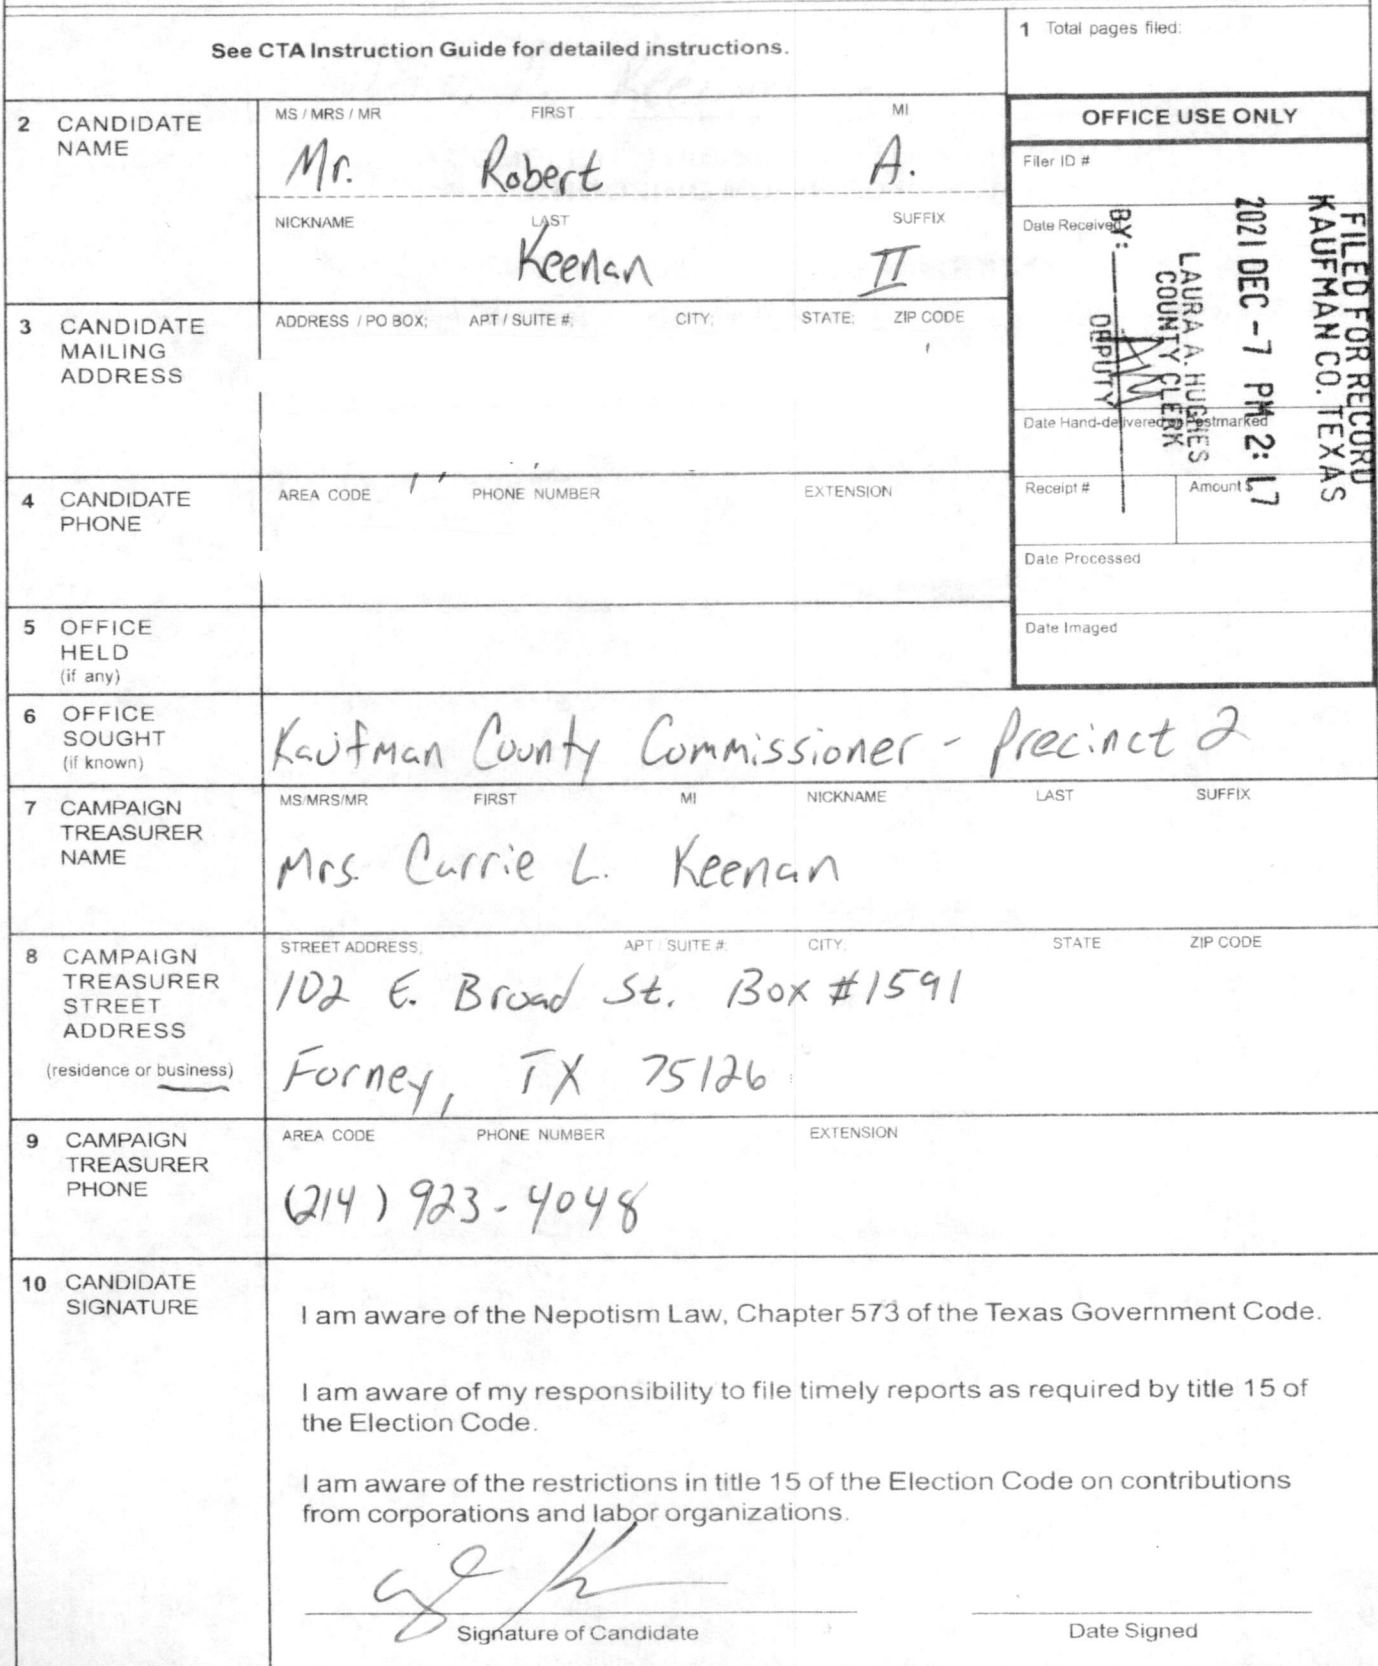 See CTA Instruction Guide for detailed instructions.
1 Total pages filed:
2 CANDIDATE NAME
MS / MRS / MR FIRST MI
Mr. Robert A.
NICKNAME LAST SUFFIX
Keenan II
OFFICE USE ONLY
Filer ID #
Date Received
Date Hand-delivered or Postmarked
Receipt # Amount $
Date Processed
Date Imaged
FILED FOR RECORD
KAUFMAN CO. TEXAS
2021 DEC -7 PM 2: 17
LAURA A. HUGHES
COUNTY CLERK
BY:
DEPUTY
3 CANDIDATE MAILING ADDRESS
ADDRESS / PO BOX; APT / SUITE #; CITY; STATE; ZIP CODE
4 CANDIDATE PHONE
AREA CODE PHONE NUMBER EXTENSION
5 OFFICE HELD
(if any)
6 OFFICE SOUGHT
(if known)
Kaufman County Commissioner - Precinct 2
7 CAMPAIGN TREASURER NAME
MS/MRS/MR FIRST MI NICKNAME LAST SUFFIX
Mrs. Carrie L. Keenan
8 CAMPAIGN TREASURER STREET ADDRESS
(residence or business)
STREET ADDRESS; APT / SUITE #; CITY; STATE ZIP CODE
102 E. Broad St. Box #1591
Forney, TX 75126
9 CAMPAIGN TREASURER PHONE
AREA CODE PHONE NUMBER EXTENSION
(214) 923-4048
10 CANDIDATE SIGNATURE
I am aware of the Nepotism Law, Chapter 573 of the Texas Government Code.
I am aware of my responsibility to file timely reports as required by title 15 of
the Election Code.
I am aware of the restrictions in title 15 of the Election Code on contributions
from corporations and labor organizations.
Signature of Candidate Date Signed